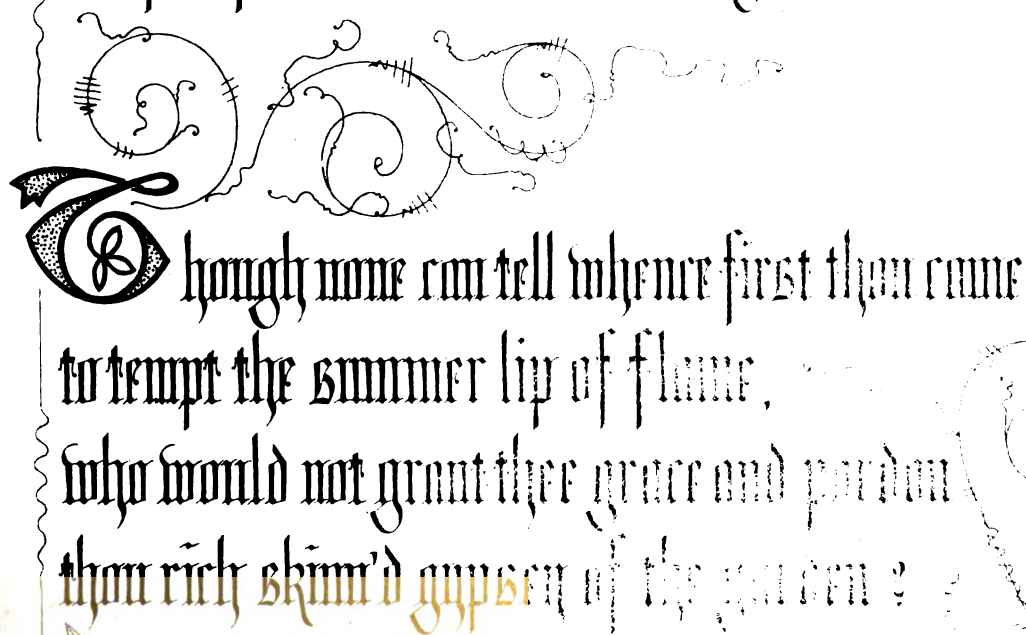 Though none can tell whence first thou came
to tempt the summer lip of flame,
who would not grant thee grace and pardon
thou rich skinn'd gypsey of the garden?